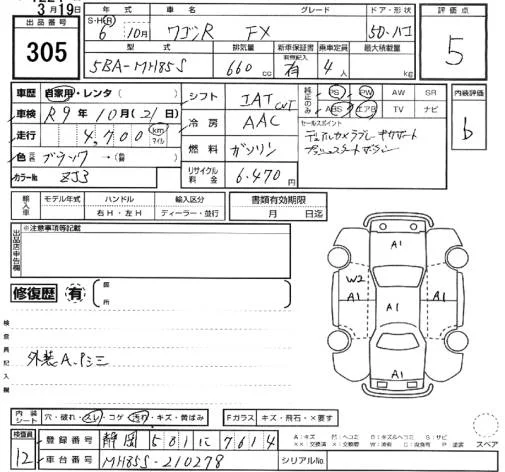 3月19日
出品番号
305
S・H・R 年式 車名 グレード ドア・形状
6年10月 ワゴンR FX 5D・ハコ
評価点
5
型式 排気量 新車保証書 乗車定員 最大積載量
5BA-MH85S 660cc 有 4人 kg
車歴 自家用・レンタ
車検 R9年10月(21)日
走行 4,700 km マイル
色 ブラック →
カラーNo ZJ3
シフト IAT CVT
冷房 AAC
燃料 ガソリン
リサイクル料金 6.470円
純正のみ
PS PW AW SR
ABS エアB TV ナビ
セールスポイント
デュアルカメラブレーキサポート
プッシュスタートボタン
内装評価
b
輸入車 モデル年式 ハンドル 輸入区分
年 右H・左H ディーラー・並行
書類有効期限
月 日迄
出品店申告欄
※注意事項等記載
修復歴 有
箇所
検査員記入欄
外装A.Pシミ
A1
W2
A1 A1 A1
A1
内装シート 穴・破れ・スレ・コゲ・汚れ・キズ・黄ばみ
Fガラス キズ・飛石・×要す
検査員
12
登録番号 静岡 501に7614
車台番号 MH85S-210278
シリアルNo.
A:キズ P:ヘコミ B:キズ&ヘコミ S:サビ
XX:交換済 X:交換要 W:波術 C:腐食有 P:塗装
スペア